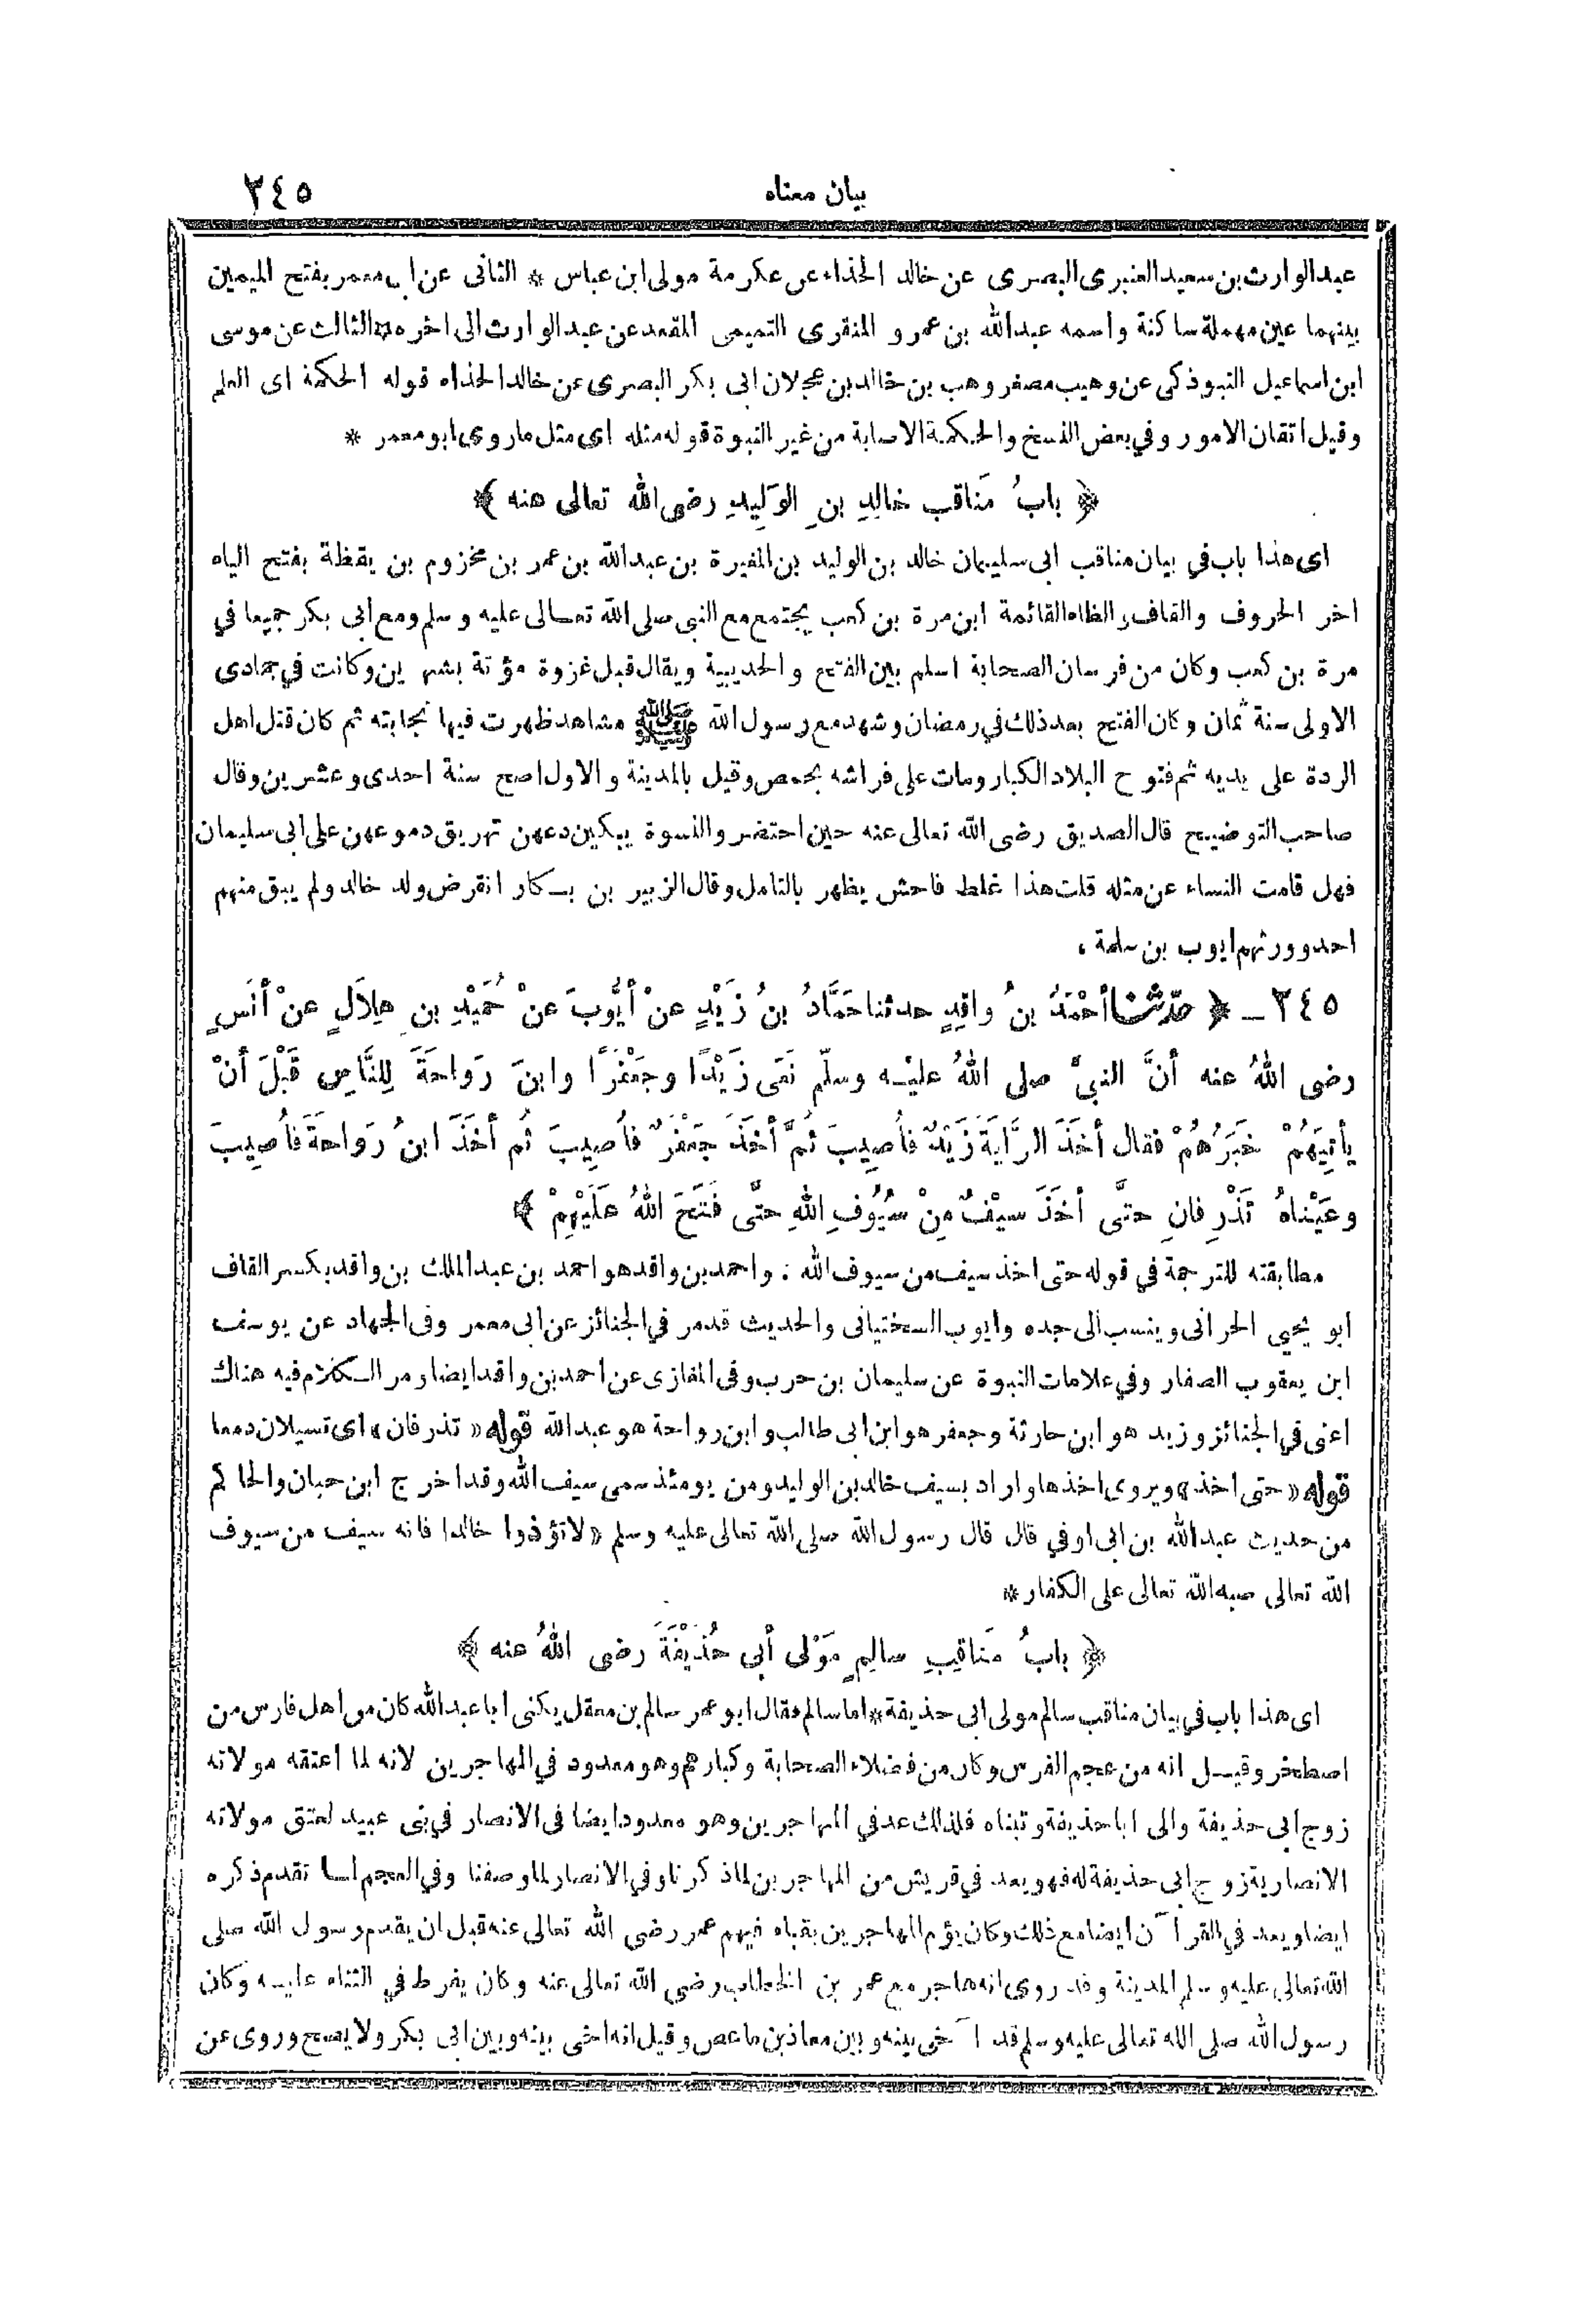 بيان معناه ٢٤٥
عبدالوارث بن سعيد العنبرى البصرى عن خالد الحذاء عن عكرمة مولى ابن عباس * الثانى عن ابى معمر بفتح الميمين
بينهما عين مهملة ساكنة واسمه عبدالله بن عمرو المنقرى التميمى المقعد عن عبدالوارث الى اخره * الثالث عن موسى
ابن اسماعيل التبوذكى عن وهيب مصغر وهب بن خالد بن عجلان ابى بكر البصرى عن خالد الحذاء قوله الحكمة اى العلم
وقيل اتقان الامور وفي بعض النسخ والحكمة الاصابة من غير النبوة قوله مثله اى مثل ماروى ابو معمر *
﴿ بابُ مَناقب خالِدِ بنِ الوَلِيدِ رضى الله تعالى عنه ﴾
اى هذا باب في بيان مناقب ابى سليمان خالد بن الوليد بن المغيرة بن عبدالله بن عمر بن مخزوم بن يقظة بفتح الياء
اخر الحروف والقاف والظاء القائمة ابن مرة بن كعب يجتمع مع النبى صلى الله تعالى عليه وسلم ومع أبى بكر جميعا في
مرة بن كعب وكان من فرسان الصحابة اسلم بين الفتح والحديبية ويقال قبل غزوة مؤتة بشهرين وكانت في جمادى
الاولى سنة ثمان وكان الفتح بعد ذلك في رمضان وشهد مع رسول الله ﷺ مشاهد ظهرت فيها نجابته ثم كان قتل اهل
الردة على يديه ثم فتوح البلاد الكبار ومات على فراشه بحمص وقيل بالمدينة والاول اصح سنة احدى وعشرين وقال
صاحب التوضيح قال الصديق رضى الله تعالى عنه حين احتضر والنسوة يبكين دعهن تهريق دموعهن على ابى سليمان
فهل قامت النساء عن مثله قلت هذا غلط فاحش يظهر بالتامل وقال الزبير بن بكار انقرض ولد خالد ولم يبق منهم
احد وورثهم ايوب بن سلمة ،
٢٤٥ ـ ﴿ حدّثنا أحْمَدُ بنُ واقِدٍ حدثنا حَمَّادُ بنُ زَيْدٍ عنْ أيُّوبَ عنْ حُمَيْدِ بنِ هِلاَلٍ عنْ أنَسٍ
رضى اللهُ عنه أنَّ النبىَّ صلى اللهُ عليْه وسلّم نَعَى زَيْدًا وجَعْفَرًا وابنَ رَواحَةَ لِلنَّاسِ قَبْلَ أنْ
يأتِيَهُمْ خَبَرُهُمْ فقال أخَذَ الرَّايَةَ زَيْدٌ فأُصِيبَ ثُمَّ أخَذَ جَعْفَرٌ فأُصِيبَ ثُم أخَذَ ابنُ رَواحةَ فأُصِيبَ
وعَيْناهُ تَذْرِفانِ حتَّى أخَذَ سيْفٌ مِنْ سُيُوفِ اللهِ حتَّى فَتَحَ اللهُ عَلَيْهِمْ ﴾
مطابقته للترجمة في قوله حتى اخذ سيف من سيوف الله : واحمد بن واقد هو احمد بن عبدالملك بن واقد بكسر القاف
ابو يحيى الحرانى وينسب الى جده وايوب السختيانى والحديث قدمر في الجنائز عن ابى معمر وفى الجهاد عن يوسف
ابن يعقوب الصفار وفي علامات النبوة عن سليمان بن حرب وفى المغازى عن احمد بن واقد ايضا ومر الكلام فيه هناك
اعنى في الجنائز وزيد هو ابن حارثة وجعفر هو ابن ابى طالب وابن رواحة هو عبدالله قوله «تذرفان» اى تسيلان دمعا
قوله «حتى اخذ» ويروى اخذها واراد بسيف خالد بن الوليد ومن يومئذ سمى سيف الله وقد اخرج ابن حبان والحاكم
من حديث عبدالله بن ابى اوفي قال قال رسول الله صلى الله تعالى عليه وسلم «لاتؤذوا خالدا فانه سيف من سيوف
الله تعالى صبه الله تعالى على الكفار *
﴿ بابُ مَناقِبِ سالِمٍ مَوْلى أبى حُذَيْفَةَ رضى اللهُ عنه ﴾
اى هذا باب في بيان مناقب سالم مولى ابى حذيفة * اما سالم فقال ابو عمر سالم بن معقل يكنى ابا عبدالله كان من اهل فارس من
اصطخر وقيل انه من عجم الفرس وكان من فضلاء الصحابة وكبارهم وهو معدود في المهاجرين لانه لما اعتقه مولاته
زوج ابى حذيفة والى اباحذيفة وتبناه فلذلك عد في المهاجرين وهو معدود ايضا فى الانصار في بنى عبيد لعتق مولاته
الانصارية زوج ابى حذيفة له فهو يعد في قريش من المهاجرين لماذكرنا وفي الانصار لما وصفنا وفي العجم لما تقدم ذكره
ايضا ويعد في القرآن ايضا مع ذلك وكان يؤم المهاجرين بقباء فيهم عمر رضى الله تعالى عنه قبل ان يقدم رسول الله صلى
الله تعالى عليه وسلم المدينة وقد روى انه هاجر مع عمر بن الخطاب رضى الله تعالى عنه وكان يفرط في الثناء عليه وكان
رسول الله صلى الله تعالى عليه وسلم قد آخى بينه وبين معاذ بن ماعص وقيل انه اخى بينه وبين ابى بكر ولا يصح وروى عن